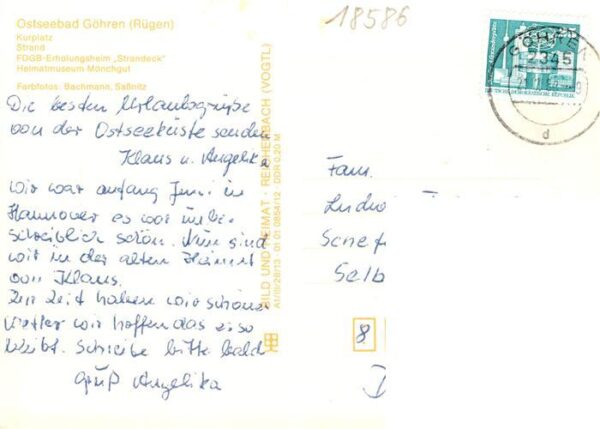 18586
Ostseebad Göhren (Rügen)
Kurplatz
Strand
FDGB-Erholungsheim „Strandeck"
Heimatmuseum Mönchgut
Farbfotos: Bachmann, Saßnitz
GÖHREN
2345
d
Die besten Urlaubsgrüße
von der Ostseeküste senden
Klaus u. Angelika
Wir war anfang Juni in
Hannover es war unbe
schreiblich schön. Nun sind
wir in der alten Heimat
von Klaus.
Zur Zeit haben wir schönes
Wetter wir hoffen das es so
bleibt. Schreibe bitte bald
Gruß Angelika
BILD UND HEIMAT · REICHENBACH (VOGTL)
01 01 0854/12 · DDR 0,20 M
Fam.
Ludw
Selb
8
D